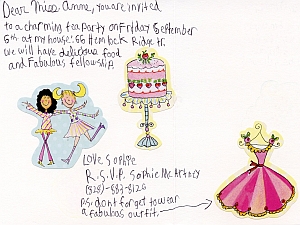 Dear Miss Anne, you are invited
to a charming tea party on Friday September
6th at my house: 66 Hemlock Ridge tr.
we will have delicious food
and Fabulous fellowship
Love Sophie
R.S.V.P. Sophie McArtney
(828)-883-8126
P.S: dont forget to wear
a fabulos ourfit.